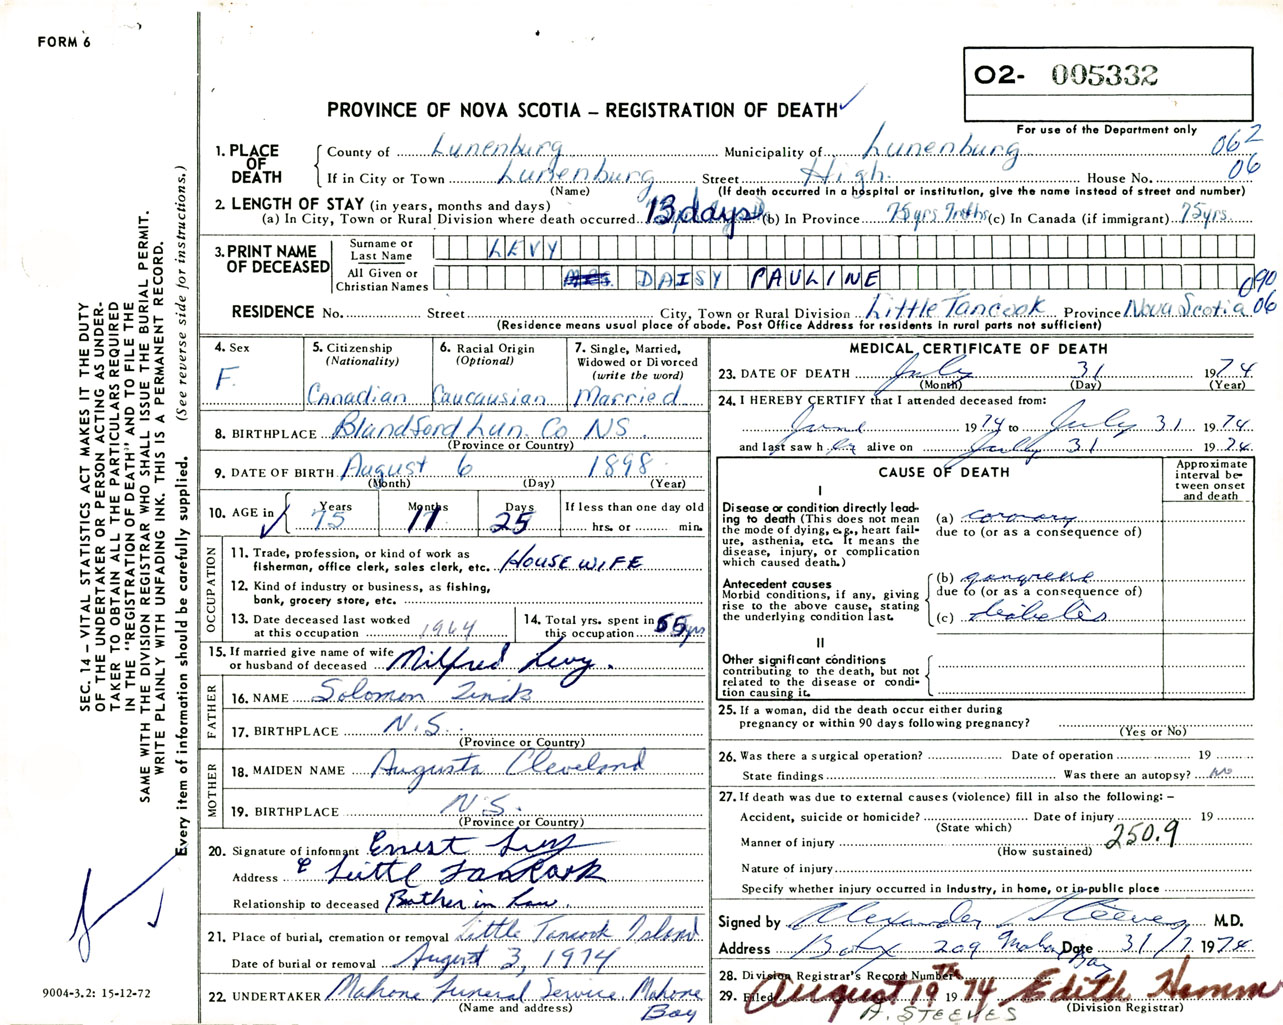 FORM 6
O2- 005332
PROVINCE OF NOVA SCOTIA – REGISTRATION OF DEATH
For use of the Department only
1. PLACE OF DEATH
County of Lunenburg Municipality of Lunenburg 062
If in City or Town Lunenburg Street High House No. 06
(Name) (If death occurred in a hospital or institution, give the name instead of street and number)
2. LENGTH OF STAY (in years, months and days)
(a) In City, Town or Rural Division where death occurred 13 days (b) In Province 75yrs (c) In Canada (if immigrant) 75yrs.
3. PRINT NAME OF DECEASED
Surname or Last Name LEVY
All Given or Christian Names DAISY PAULINE
090
RESIDENCE No. Street City, Town or Rural Division Little Tancook Province Nova Scotia 06
(Residence means usual place of abode. Post Office Address for residents in rural parts not sufficient)
4. Sex F.
5. Citizenship (Nationality) Canadian
6. Racial Origin (Optional) Caucausian
7. Single, Married, Widowed or Divorced (write the word) Married
8. BIRTHPLACE Blandford Lun. Co NS.
(Province or Country)
9. DATE OF BIRTH August 6 1898
(Month) (Day) (Year)
10. AGE in Years 75 Months 11 Days 25 If less than one day old hrs. or min.
OCCUPATION
11. Trade, profession, or kind of work as fisherman, office clerk, sales clerk, etc. HOUSEWIFE
12. Kind of industry or business, as fishing, bank, grocery store, etc.
13. Date deceased last worked at this occupation 1964
14. Total yrs. spent in this occupation 55 yrs
15. If married give name of wife or husband of deceased Milfred Levy.
FATHER
16. NAME Solomon Zinck
17. BIRTHPLACE N.S.
(Province or Country)
MOTHER
18. MAIDEN NAME Augusta Cleveland
19. BIRTHPLACE N.S.
(Province or Country)
20. Signature of informant Ernest Levy
Address Little Tancook
Relationship to deceased Bother in Law.
21. Place of burial, cremation or removal Little Tancook Island
Date of burial or removal August 3, 1974
22. UNDERTAKER Mahone Funeral Service, Mahone Bay
(Name and address)
MEDICAL CERTIFICATE OF DEATH
23. DATE OF DEATH July 31 1974
(Month) (Day) (Year)
24. I HEREBY CERTIFY that I attended deceased from:
June 1974 to July 31 1974
and last saw her alive on July 31 1974
CAUSE OF DEATH
Approximate interval between onset and death
I
Disease or condition directly leading to death (This does not mean the mode of dying, e.g., heart failure, asthenia, etc. It means the disease, injury, or complication which caused death.)
(a) coronary
due to (or as a consequence of)
Antecedent causes
Morbid conditions, if any, giving rise to the above cause, stating the underlying condition last.
(b) gangrene
due to (or as a consequence of)
(c) diabetes
II
Other significant conditions contributing to the death, but not related to the disease or condition causing it.
25. If a woman, did the death occur either during pregnancy or within 90 days following pregnancy?
(Yes or No)
26. Was there a surgical operation? Date of operation 19
State findings Was there an autopsy? No
27. If death was due to external causes (violence) fill in also the following: –
Accident, suicide or homicide? Date of injury 19
(State which)
Manner of injury 250.9
(How sustained)
Nature of injury
Specify whether injury occurred in Industry, in home, or in public place
Signed by Alexander Steeves M.D.
Address Box 209 Mahone Bay Date 31/7 1974
28. Division Registrar's Record Number
29. Filed August 19th 1974 Edith Hamm
A. STEEVES (Division Registrar)
SEC. 14 – VITAL STATISTICS ACT MAKES IT THE DUTY
OF THE UNDERTAKER OR PERSON ACTING AS UNDER-
TAKER TO OBTAIN ALL THE PARTICULARS REQUIRED
IN THE "REGISTRATION OF DEATH" AND TO FILE THE
SAME WITH THE DIVISION REGISTRAR WHO SHALL ISSUE THE BURIAL PERMIT.
WRITE PLAINLY WITH UNFADING INK. THIS IS A PERMANENT RECORD.
Every item of information should be carefully supplied. (See reverse side for instructions.)
9004-3.2: 15-12-72